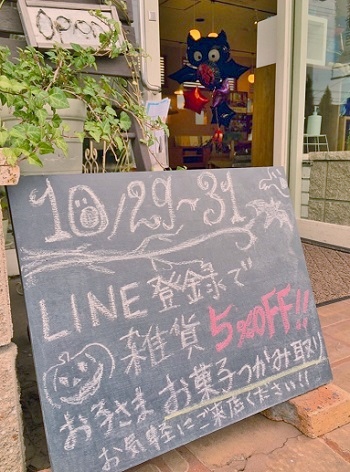 OPEN
10/29~31
LINE登録で
雑貨5%OFF!!
お子さまお菓子つかみ取り
お気軽にご来店ください!!